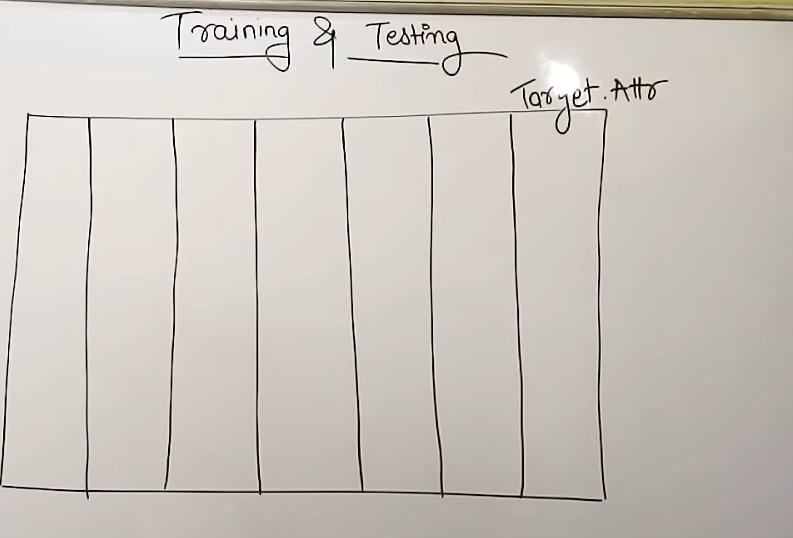 Training & Testing
Target. Attr